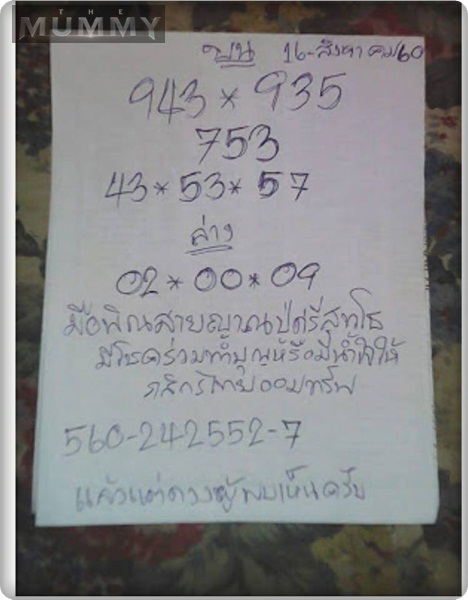 THE
MUMMY
บน 16-สิงหาคม60
943*935
753
43*53*57
ล่าง
02*00*09
มือพิณสายญาณปู่ศรีสุทโธ
มีโชคร่วมทำบุญหรือมีน้ำใจให้
กสิกรไทยออมทรัพ
560-242552-7
แล้วแต่ดวงผู้พบเห็นครับ